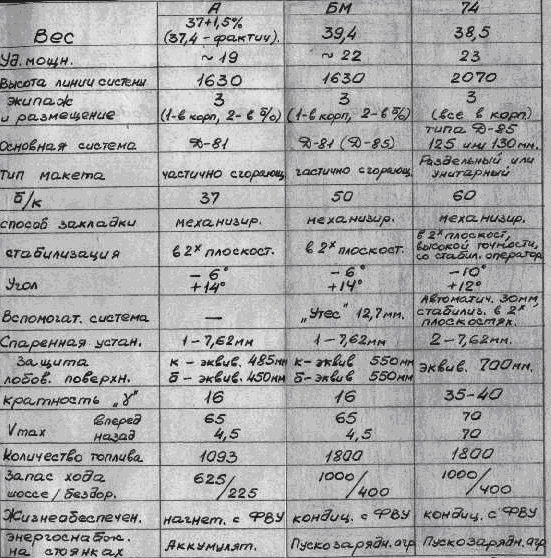 А БМ 74
Вес 37+1,5% (37,4 - фактич). 39,4 38,5
Уд. мощн. ~ 19 ~ 22 23
Высота линии системы 1630 1630 2070
экипаж и размещение 3 (1-в корп, 2-в б/о) 3 (1-в корп, 2-в б/о) 3 (все в корп)
Основная система Д-81 Д-81 (Д-85) типа Д-85 125 или 130мм.
Тип макета частично сгорающ. частично сгорающ. Раздельный или унитарный
б/к 37 50 60
способ закладки механизир. механизир. механизир.
стабилизация в 2х плоскост. в 2х плоскост. в 2х плоскост, высокой точности, со стабил. оператор
Угол -6° +14° -6° +14° -10° +12°
Вспомогат. система — "Утес" 12,7мм. Автоматич. 30мм, стабилиз. в 2х плоскостях.
Спаренная устан. 1-7,62мм 1-7,62мм 2-7,62мм.
Защита лобов. поверхн. к - эквив. 485мм б - эквив. 450мм к- эквив 550мм б- эквив 550мм эквив. 700мм.
кратность "γ" 16 16 35-40
Vmax вперед 65 65 70
назад 4,5 4,5 70
Количество топлива 1093 1800 1800
Запас хода шоссе/бездор. 625/225 1000/400 1000/400
Жизнеобеспечен. нагнет. с ФВУ кондиц. с ФВУ кондиц. с ФВУ
энергоснабж. на стоянках Аккумулят. Пускозарядн.агр Пускозарядн.агр